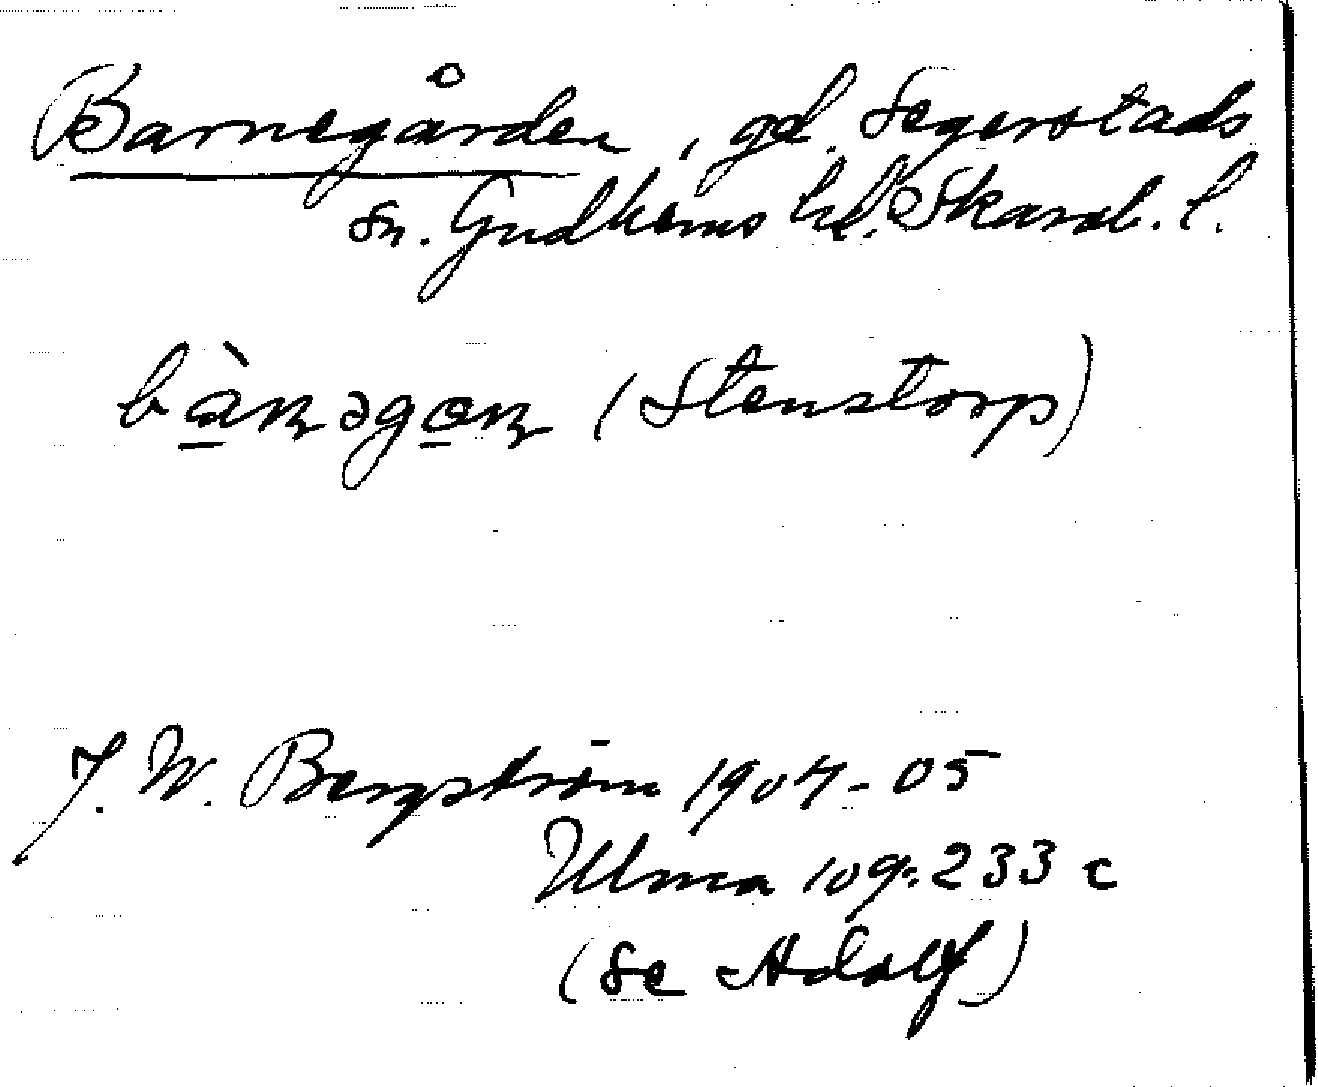 Barnegården, gd. Segerstads
sn. Gudhems hd. Skarab. l.
bànəgan (Stenstorp)
J. W. Bergström 1904-05
Ulma 109:233 c
(se Adolf)